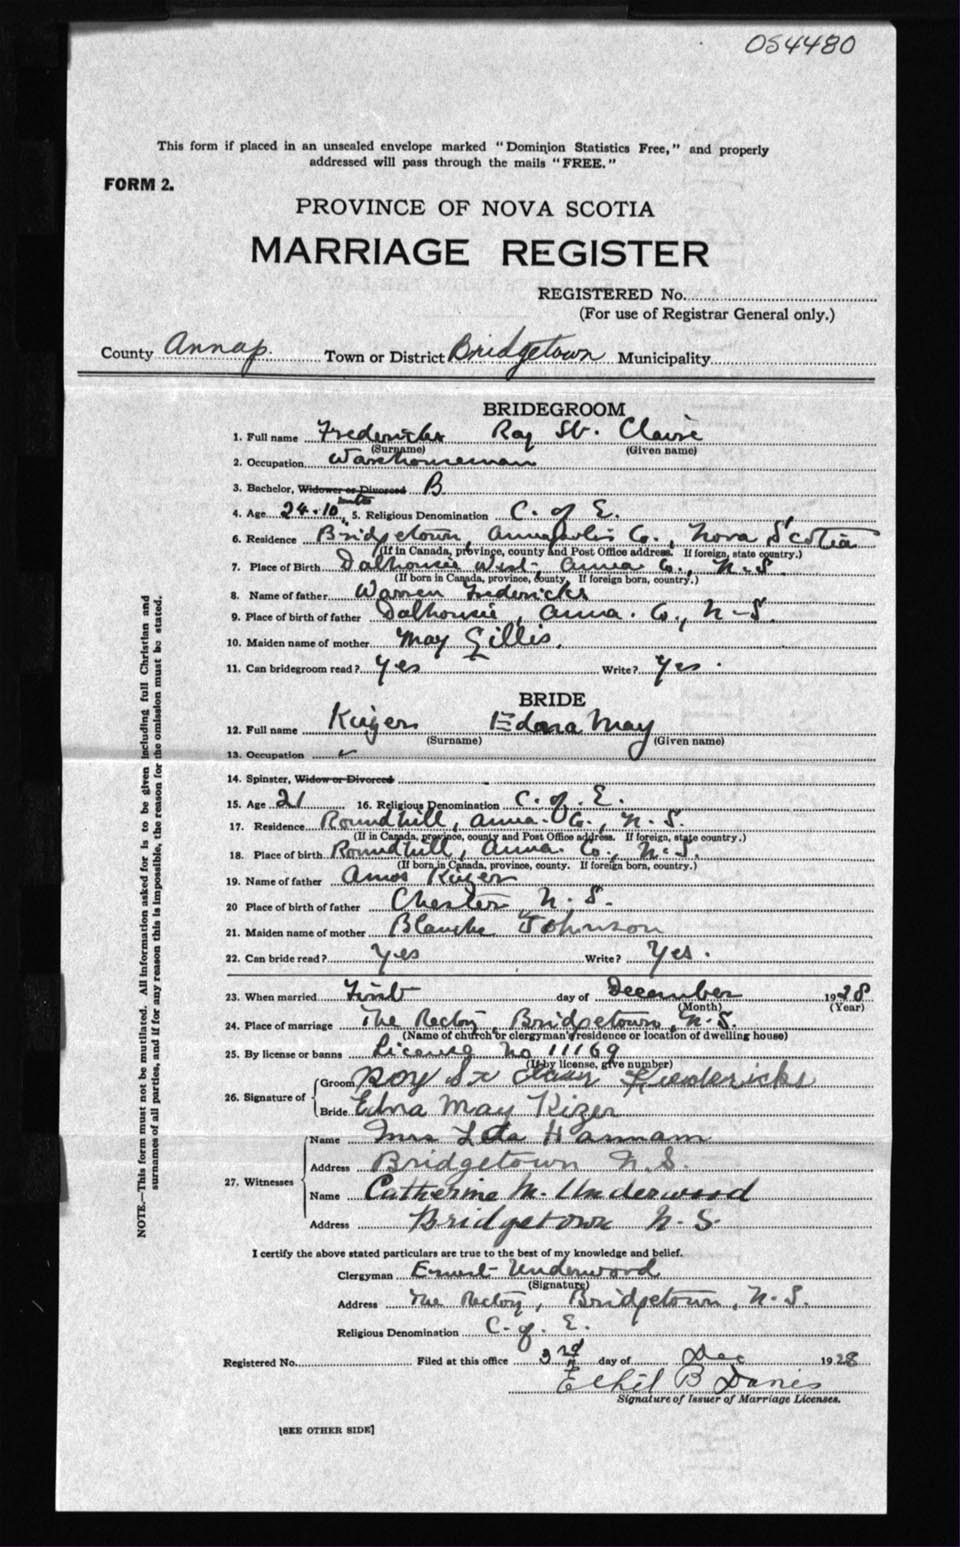 054480
This form if placed in an unsealed envelope marked "Dominion Statistics Free," and properly
addressed will pass through the mails "FREE."
FORM 2.
PROVINCE OF NOVA SCOTIA
MARRIAGE REGISTER
REGISTERED No.
(For use of Registrar General only.)
County Annap. Town or District Bridgetown Municipality
BRIDEGROOM
1. Full name Fredericks Roy St. Claire
(Surname) (Given name)
2. Occupation Warehouseman
3. Bachelor, Widower or Divorced B
4. Age 24-10 5. Religious Denomination C. of E.
6. Residence Bridgetown, Annapolis Co., Nova Scotia
(If in Canada, province, county and Post Office address. If foreign, state country.)
7. Place of Birth Dalhousie West, Anna Co., N.S.
(If born in Canada, province, county. If foreign born, country.)
8. Name of father Warren Fredericks
9. Place of birth of father Dalhousie, Anna. Co., N-S.
10. Maiden name of mother May Gillis.
11. Can bridegroom read? Yes Write? Yes.
BRIDE
12. Full name Edna May
(Surname) (Given name)
13. Occupation
14. Spinster, Widow or Divorced
15. Age 21 16. Religious Denomination C. of. E.
17. Residence Roundhill, Anna. Co., N.S.
(If in Canada, province, county and Post Office address. If foreign, state country.)
18. Place of birth Roundhill, Anna. Co., N.S.
(If born in Canada, province, county. If foreign born, country.)
19. Name of father Amos
20 Place of birth of father Chester N.S.
21. Maiden name of mother Blanche Johnson
22. Can bride read? Yes Write? Yes.
23. When married First day of December 1928
(Month) (Year)
24. Place of marriage The Rectory, Bridgetown, N.S.
(Name of church or clergyman's residence or location of dwelling house)
25. By license or banns License No 11169
(If by license, give number)
26. Signature of Groom Roy St Fredericks
Bride Edna May Kizer
27. Witnesses Name Mrs Leta Hannam
Address Bridgetown N.S.
Name Catherine M. Underwood
Address Bridgetown N.S.
I certify the above stated particulars are true to the best of my knowledge and belief.
Clergyman Ernest Underwood
(Signature)
Address The Rectory, Bridgetown, N.S.
Religious Denomination C. of. E.
Registered No. Filed at this office 3rd day of Dec 1928
Ethel B Danies
Signature of Issuer of Marriage Licenses.
[SEE OTHER SIDE]
NOTE.—This form must not be mutilated. All information asked for is to be given including full Christian and
surnames of all parties, and if for any reason this is impossible, the reason for the omission must be stated.